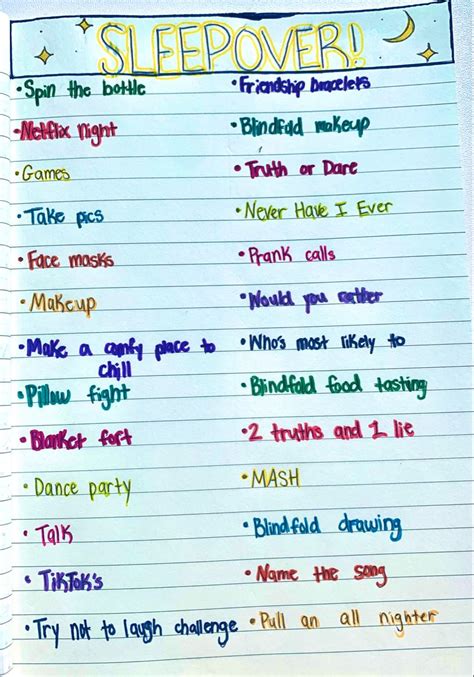 SLEEPOVER!
•Spin the bottle
•Netflix night
•Games
•Take pics
•Face masks
•Makeup
•Make a comfy place to
chill
•Pillow fight
•Blanket fort
•Dance party
•Talk
•TikTok's
•Try not to laugh challenge
•Friendship bracelets
•Blindfold makeup
•Truth or Dare
•Never Have I Ever
•Prank calls
•Would you rather
•Who's most likely to
•Blindfold food tasting
•2 truths and 1 lie
•MASH
•Blindfold drawing
•Name the song
•Pull an all nighter